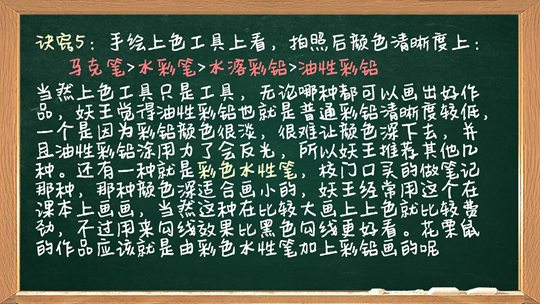 诀窍5：手绘上色工具上看，拍照后颜色清晰度上：
马克笔>水彩笔>水溶彩铅>油性彩铅
当然上色工具只是工具，无论哪种都可以画出好作
品，妖王觉得油性彩铅也就是普通彩铅清晰度较低，
一个是因为彩铅颜色很淡，很难让颜色深下去，并
且油性彩铅涂用力了会反光，所以妖王推荐其他几
种。还有一种就是彩色水性笔，校门口买的做笔记
那种，那种颜色深适合画小的，妖王经常用这个在
课本上画画，当然这种在比较大画上上色就比较费
劲，不过用来勾线效果比黑色勾线更好看。花栗鼠
的作品应该就是由彩色水性笔加上彩铅画的呢